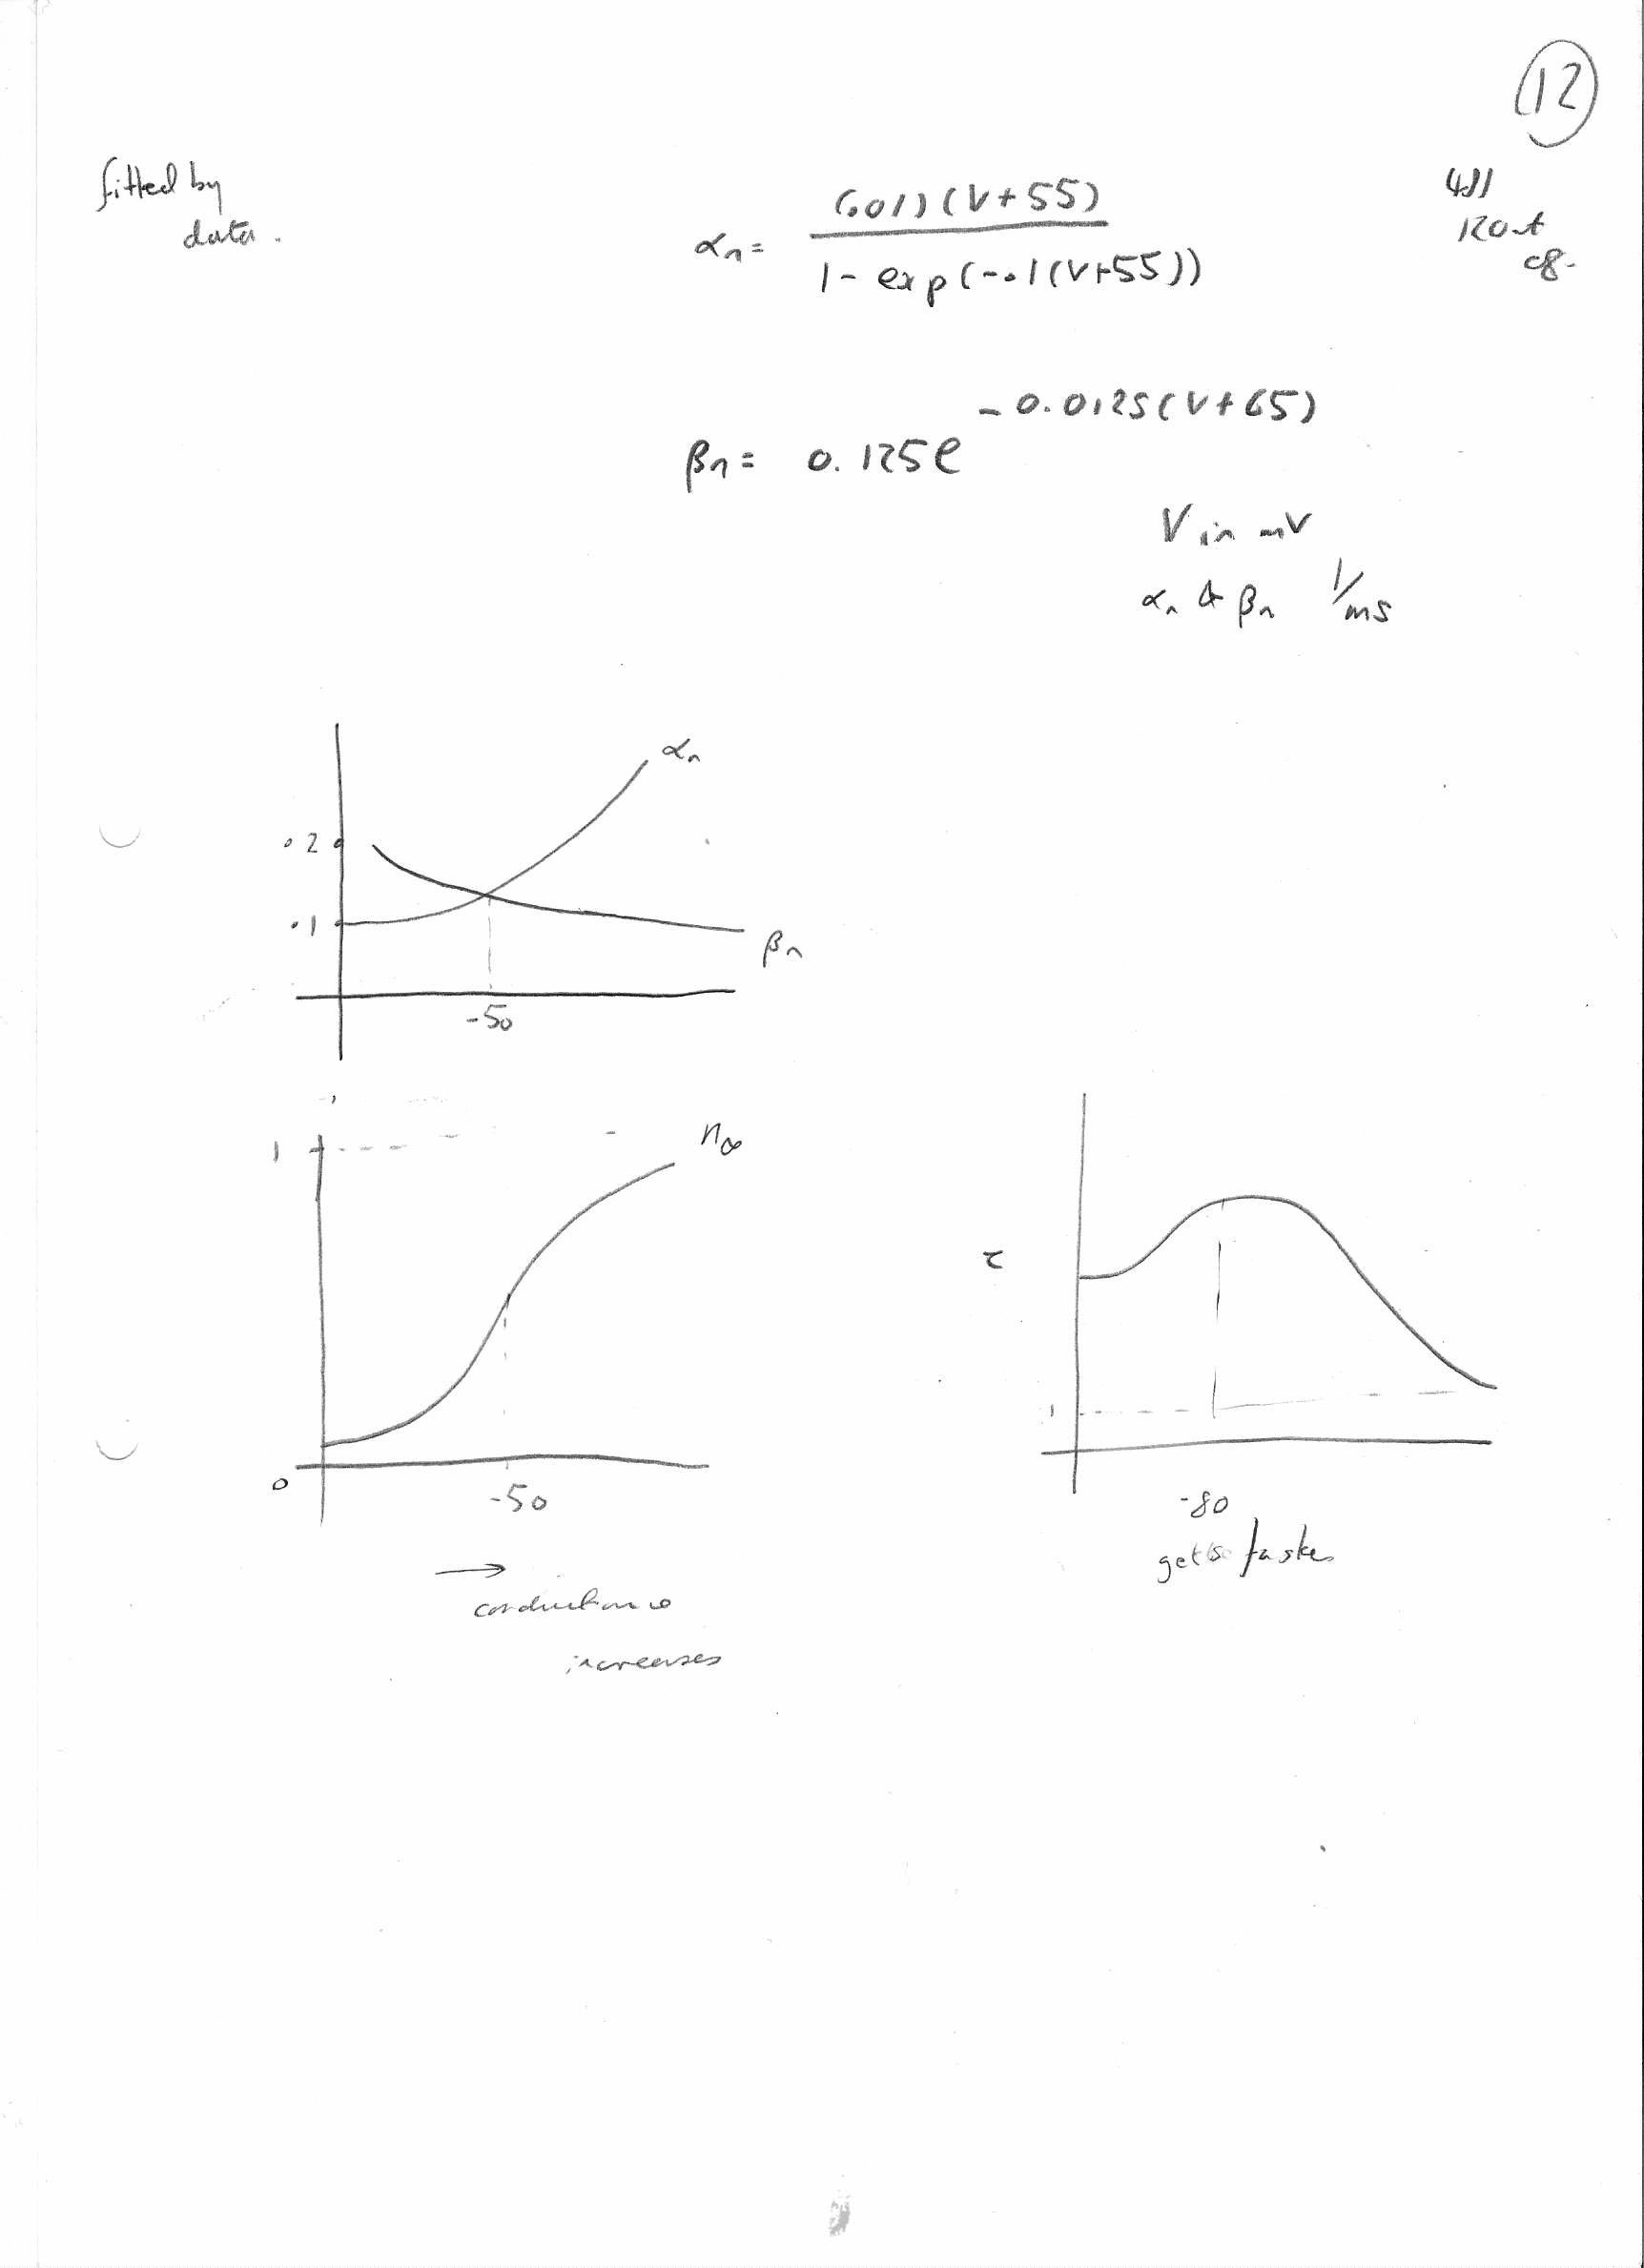 12
fitted by
data.
αn = (.01)(V+55) / 1 - exp(-.1(V+55))
βn = 0.125e^-0.0125(V+65)
V in mV
αn & βn 1/ms
αn
.2
.1
βn
-50
1
n∞
0
-50
→
conductance
increases
τ
1
-80
gets faster